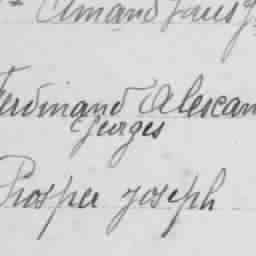 Amand
Ferdinand Alexan
Georges
Prosper Joseph